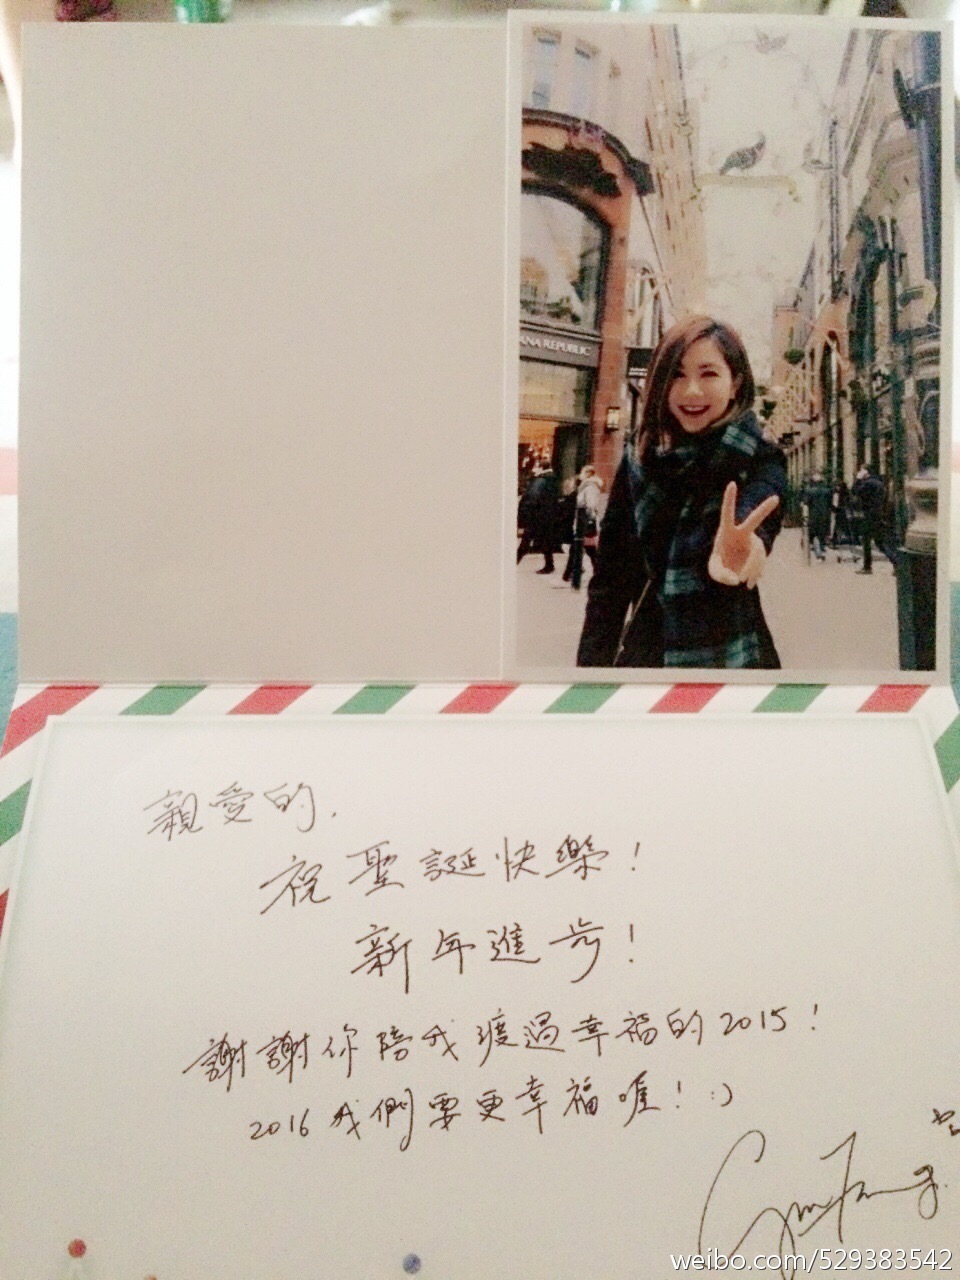 ANA REPUBLIC
親愛的,
祝聖誕快樂!
新年進步!
謝謝你陪我渡過幸福的2015!
2016我們要更幸福喔! :)
weibo.com/529383542